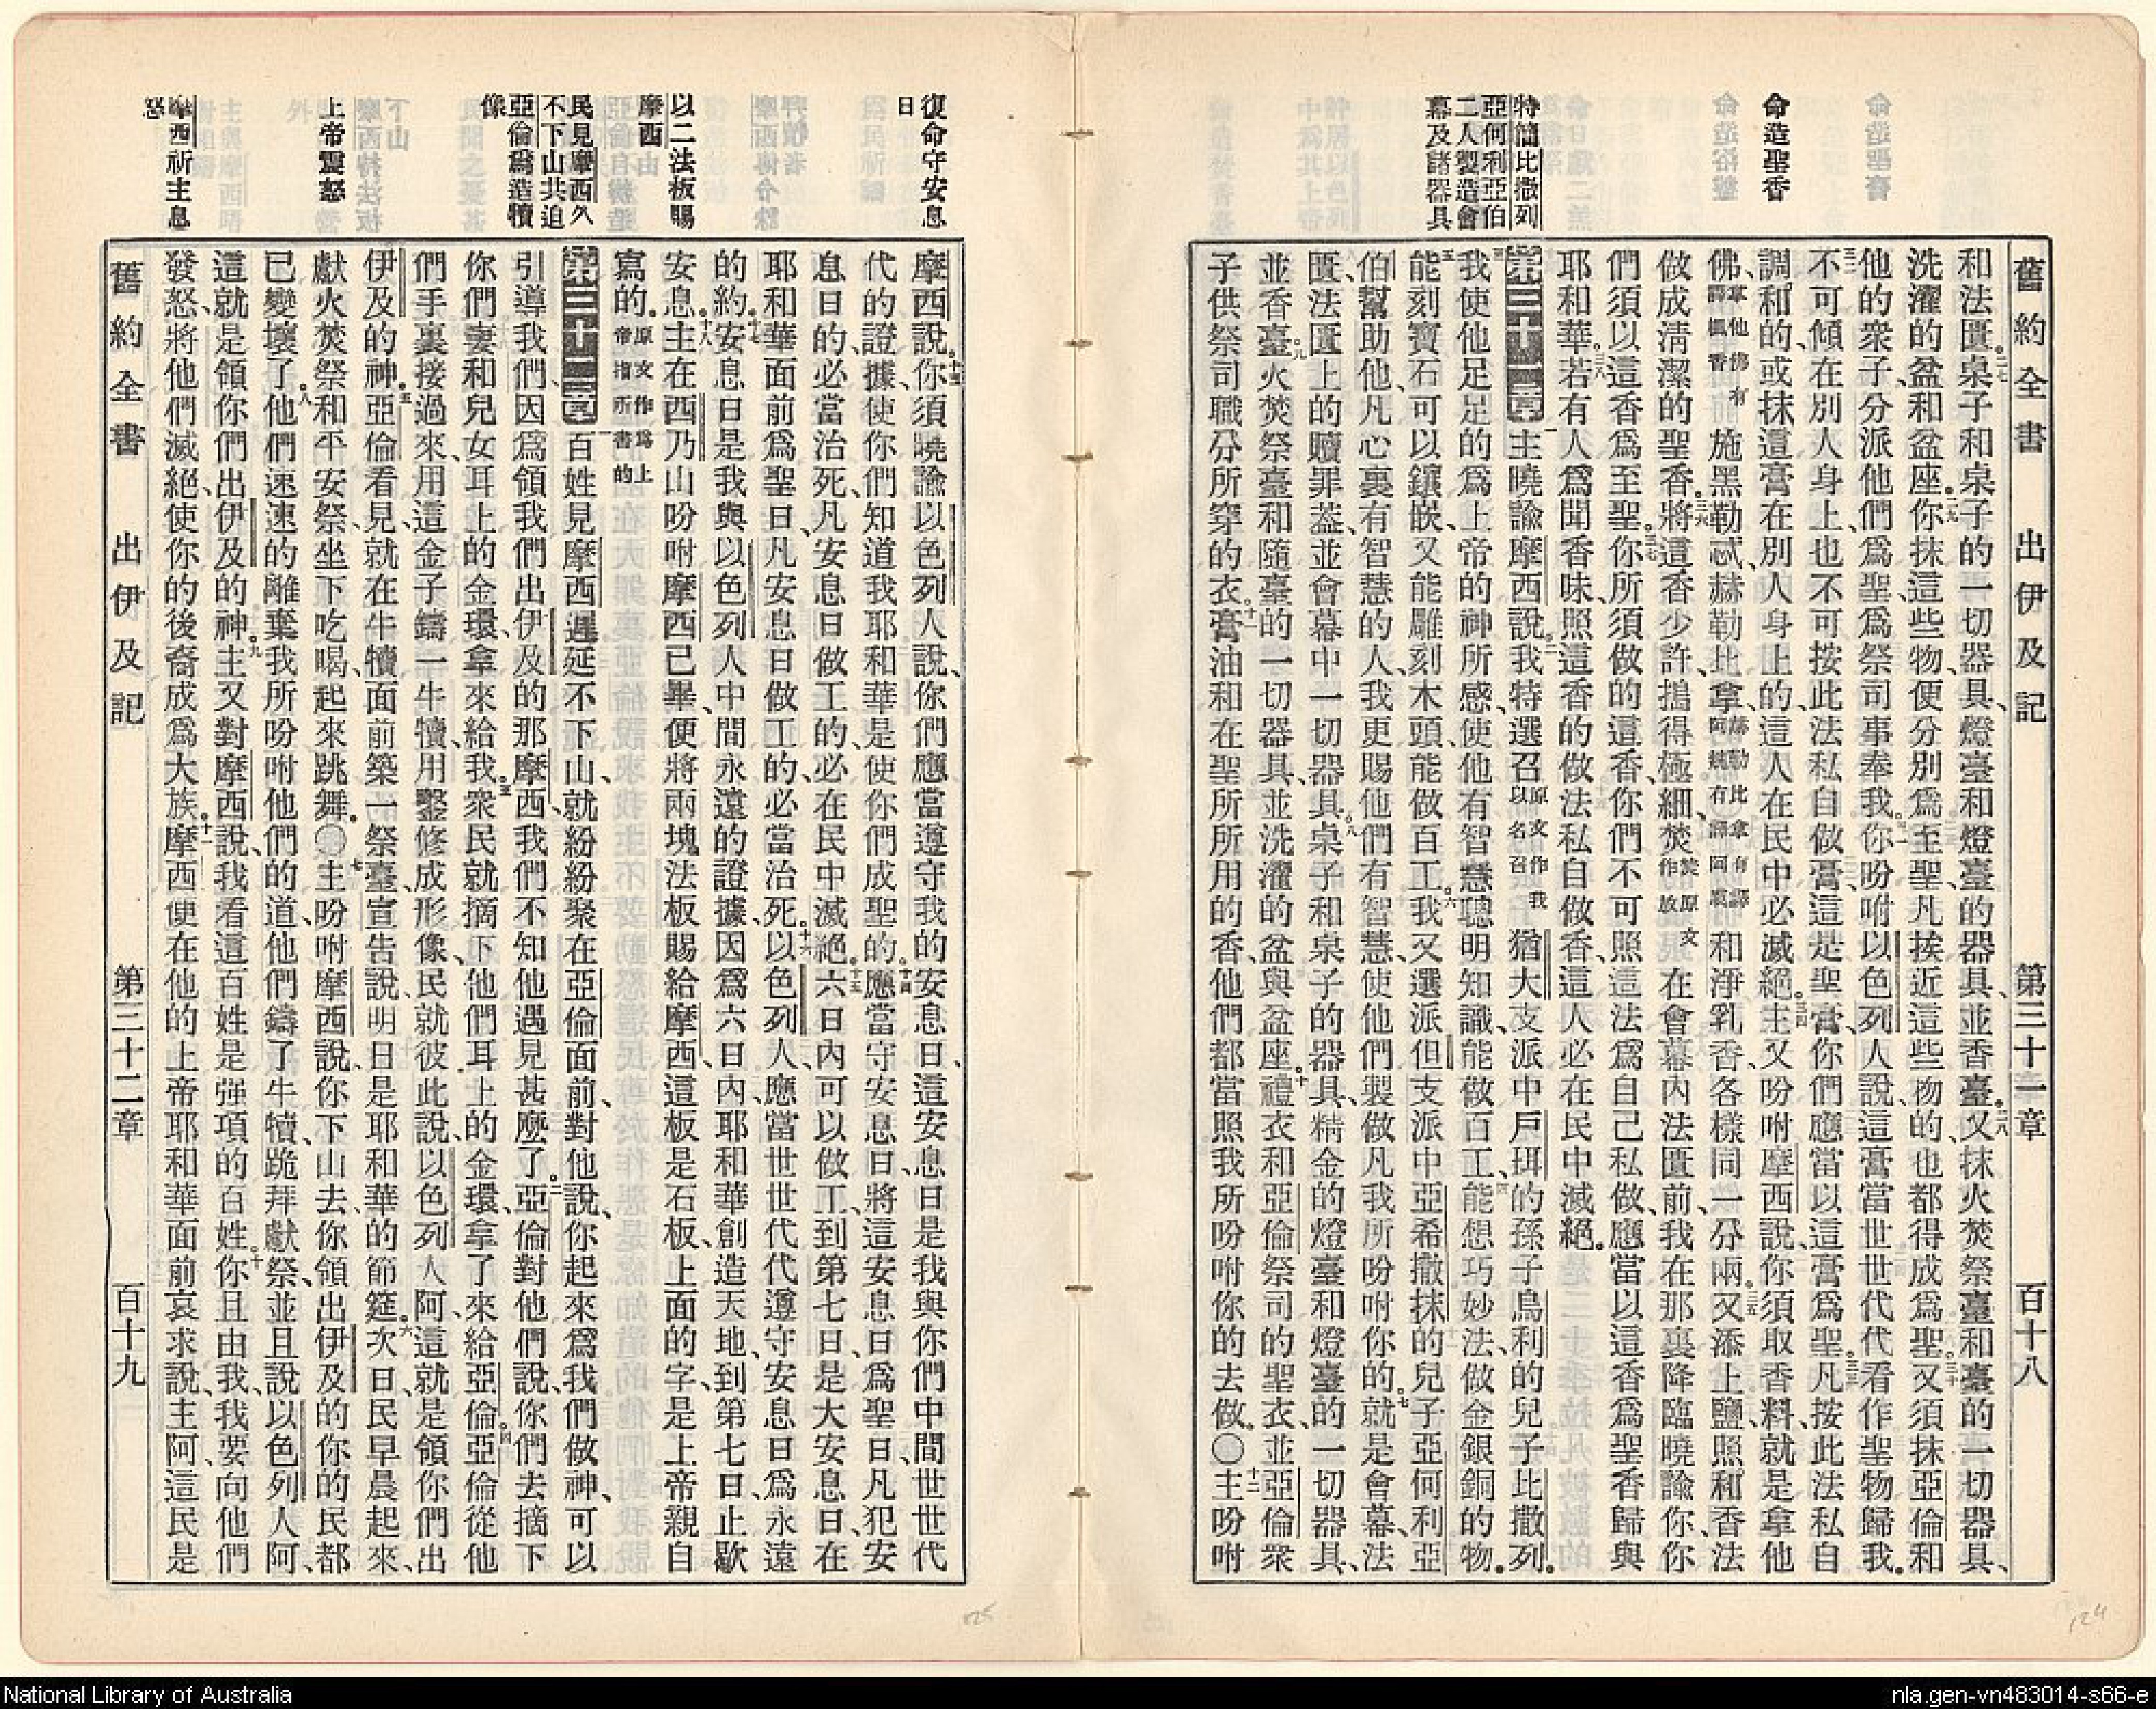 舊約全書 出伊及記 第三十一章 百十八
命造聖香
特簡比撒列
亞何利亞伯
二人製造會
幕及諸器具
和法匱、二七桌子和桌子的一切器具、燈臺和燈臺的器具、並香臺。二八又抹火焚祭臺和臺的一切器具、
洗濯的盆和盆座。二九你抹這些物、便分別爲至聖、凡挨近這些物的、也都得成爲聖。三十又須抹亞倫和
他的衆子、分派他們爲聖、爲祭司事奉我。三一你吩咐以色列人說、這膏當世世代代看作聖物歸我。
三二不可傾在別人身上、也不可按此法私自做膏、這是聖膏、你們應當以這膏爲聖。三三凡按此法私自
調和的、或抹這膏在別人身上的、這人在民中必滅絕。三四主又吩咐摩西說、你須取香料、就是拿他
佛、拿他佛有譯楓香施黑勒忒、赫勒比拿、赫勒比拿有譯阿魏有譯阿虞和淨乳香、各樣同一分兩。三五又添上鹽、照和香法
做成淸潔的聖香。三六將這香少許、搗得極細、焚焚原文作放在會幕內法匱前、我在那裏降臨曉諭你、你
們須以這香爲至聖。三七你所須做的這香、你們不可照這法爲自己私做、應當以這香爲聖香歸與
耶和華。三八若有人爲聞香味、照這香的做法私自做香、這人必在民中滅絕。
第三十一章 一主曉諭摩西說、二我特選召原文作我以名召猶大支派中戶珥的孫子烏利的兒子比撒列。
三我使他足足的爲上帝的神所感、使他有智慧聰明知識、能做百工、四能想巧妙法、做金銀銅的物。
五能刻寶石可以鑲嵌、又能雕刻木頭、能做百工。六我又選派但支派中亞希撒抹的兒子亞何利亞
伯幫助他、凡心裏有智慧的人、我更賜他們有智慧、使他們製做凡我所吩咐你的。七就是會幕、法
匱、法匱上的贖罪蓋、並會幕中一切器具。八桌子和桌子的器具、精金的燈臺和燈臺的一切器具、
並香臺。九火焚祭臺和隨臺的一切器具、並洗濯的盆與盆座。十禮衣和亞倫祭司的聖衣、並亞倫衆
子供祭司職分所穿的衣。十一膏油和在聖所所用的香、他們都當照我所吩咐你的去做。〇十二主吩咐
復命守安息
日
以二法板賜
摩西
民見摩西久
不下山共迫
亞倫爲造犢
像
上帝震怒
摩西祈主息
怒
摩西說、十三你須曉諭以色列人說、你們應當遵守我的安息日、這安息日是我與你們中間世世代
代的證據、使你們知道我耶和華、是使你們成聖的。十四應當守安息日、將這安息日爲聖日、凡犯安
息日的、必當治死、凡安息日做工的、必在民中滅絕。十五六日內可以做工、到第七日是大安息日、在
耶和華面前爲聖日、凡安息日做工的、必當治死。十六以色列人、應當世世代代遵守安息日爲永遠
的約。十七安息日是我與以色列人中間永遠的證據、因爲六日內、耶和華創造天地、到第七日止歇
安息。十八主在西乃山吩咐摩西已畢、便將兩塊法板賜給摩西、這板是石板、上面的字、是上帝親自
寫的。原文作爲上帝指所書的
第三十二章 一百姓見摩西遲延不下山、就紛紛聚在亞倫面前、對他說、你起來爲我們做神、可以
引導我們、因爲領我們出伊及的那摩西、我們不知他遇見甚麼了。二亞倫對他們說、你們去摘下
你們妻和兒女耳上的金環、拿來給我。三衆民就摘下他們耳上的金環、拿了來給亞倫。四亞倫從他
們手裏接過來、用這金子鑄一牛犢、用鑿修成形像、民就彼此說、以色列人阿、這就是領你們出
伊及的神。五亞倫看見、就在牛犢面前築一祭臺、宣告說、明日是耶和華的節筵。六次日民早晨起來、
獻火焚祭和平安祭、坐下吃喝、起來跳舞。〇七主吩咐摩西說、你下山去、你領出伊及的你的民都
已變壞了。八他們速速的離棄我所吩咐他們的道、他們鑄了牛犢、跪拜獻祭、並且說、以色列人阿、
這就是領你們出伊及的神。九主又對摩西說、我看這百姓是强項的百姓。十你且由我、我要向他們
發怒、將他們滅絕、使你的後裔成爲大族。十一摩西便在他的上帝耶和華面前哀求說、主阿、這民是
舊約全書 出伊及記 第三十二章 百十九
125
124
National Library of Australia
nla.gen-vn483014-s66-e